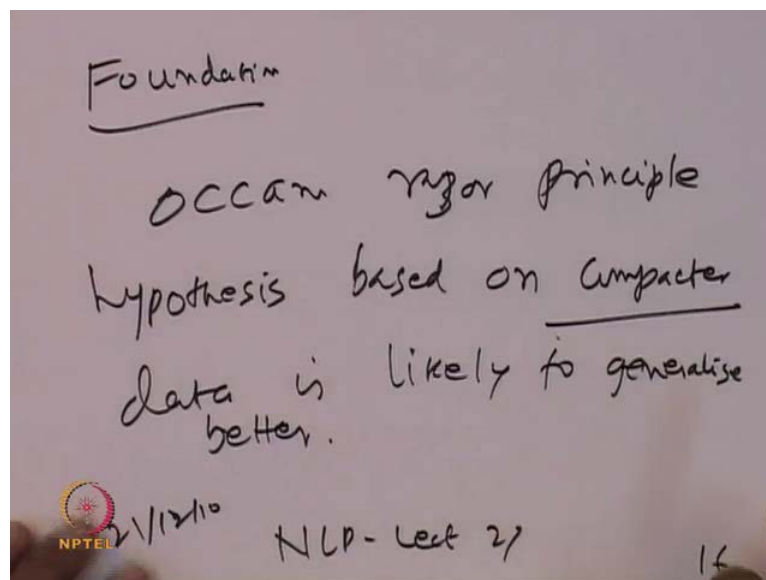 Foundation
OCCAM razor principle
hypothesis based on compacter
data is likely to generalise
better.
21/12/10
NLP - Lect 27
16
NPTEL